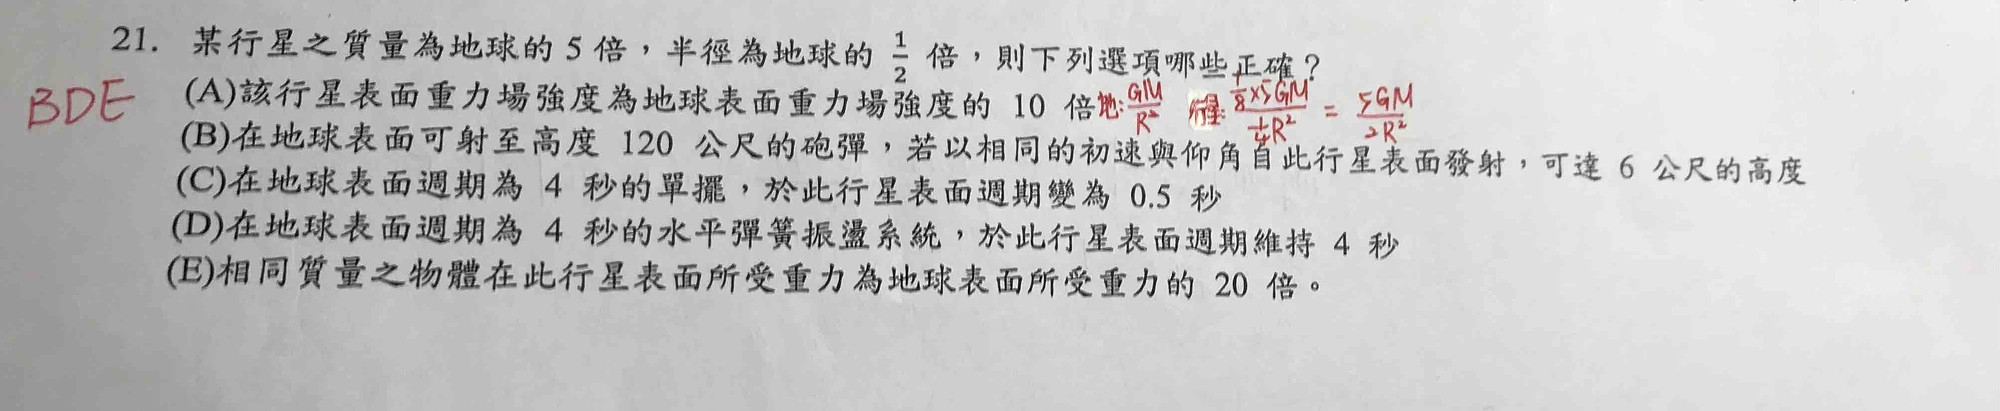 21. 某行星之質量為地球的 5 倍，半徑為地球的 1/2 倍，則下列選項哪些正確？
BDE
(A)該行星表面重力場強度為地球表面重力場強度的 10 倍 地: GM/R² 行星: (1/8×5GM)/(1/4R²) = 5GM/2R²
(B)在地球表面可射至高度 120 公尺的砲彈，若以相同的初速與仰角自此行星表面發射，可達 6 公尺的高度
(C)在地球表面週期為 4 秒的單擺，於此行星表面週期變為 0.5 秒
(D)在地球表面週期為 4 秒的水平彈簧振盪系統，於此行星表面週期維持 4 秒
(E)相同質量之物體在此行星表面所受重力為地球表面所受重力的 20 倍。